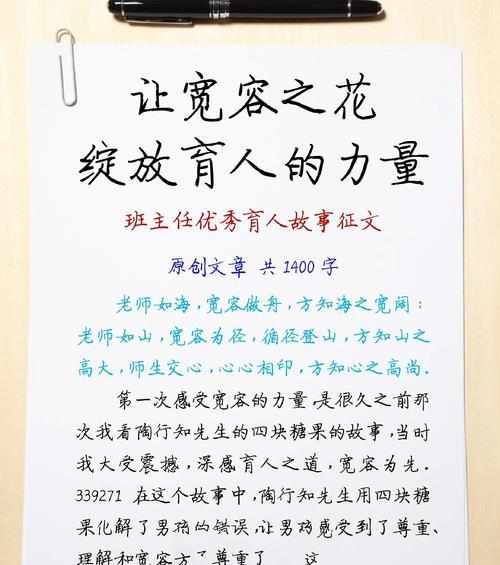 让宽容之花
绽放育人的力量
班主任优秀育人故事征文
原创文章 共1400字
老师如海，宽容做舟，方知海之宽阔；
老师如山，宽容为径，循径登山，方知山之
高大，师生交心，心心相印，方知心之高尚。
第一次感受宽容的力量，是很久之前那
次我看陶行知先生的四块糖果的故事，当时
我大受震撼，深感育人之道，宽容为先。
339271 在这个故事中，陶行知先生用四块糖
果化解了男孩的错误，让男孩感受到了尊重、
理解和宽容